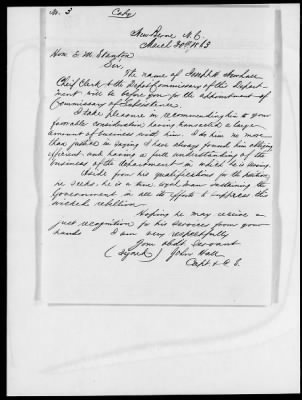 No. 3
Copy
New Berne N.C.
March 30th 1863
Hon. E. M. Stanton
Sir,
The name of Joseph H.
Chief Clerk of the Depot Commissary of this Depart-
ment will be before you for the appointment of
Commissary of Subsistence.
I take pleasure in recommending him to your
favorable consideration, having transacted a large
amount of business with him. I do him no more
than justice in saying I have always found him obliging
efficient and having a full understanding of the
business of the department in which he is serving.
Aside from his qualifications for the position
he seeks, he is a true loyal man sustaining the
Government in all its efforts to suppress this
wicked rebellion.
Hoping he may receive a
just recognition for his services from your
hands I am very respectfully
Your obdt servant
(Signed) John Hall
Capt. &